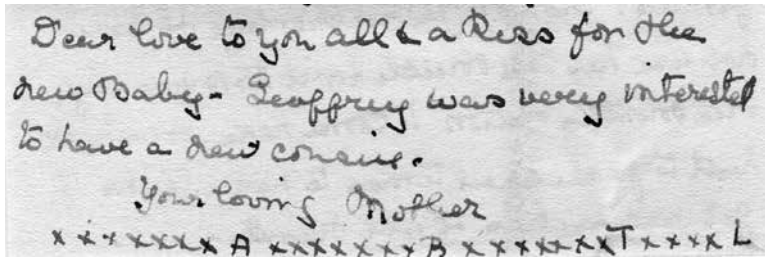 Dear love to you all & a Kiss for the
new Baby - Geoffrey was very interested
to have a new cousin.
Your loving Mother
x x x x x x x A x x x x x x x x B x x x x x x x T x x x x L